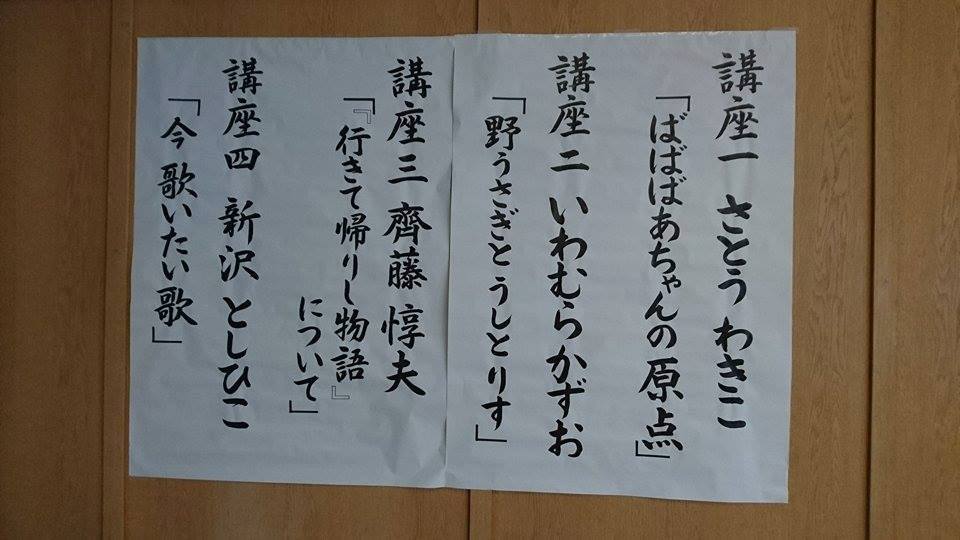 講座一 さとう わきこ
「ばばばあちゃんの原点」
講座二 いわむらかずお
「野うさぎとうしとりす」
講座三 齊藤 惇夫
「『行きて帰りし物語』
について」
講座四 新沢 としひこ
「今 歌いたい歌」